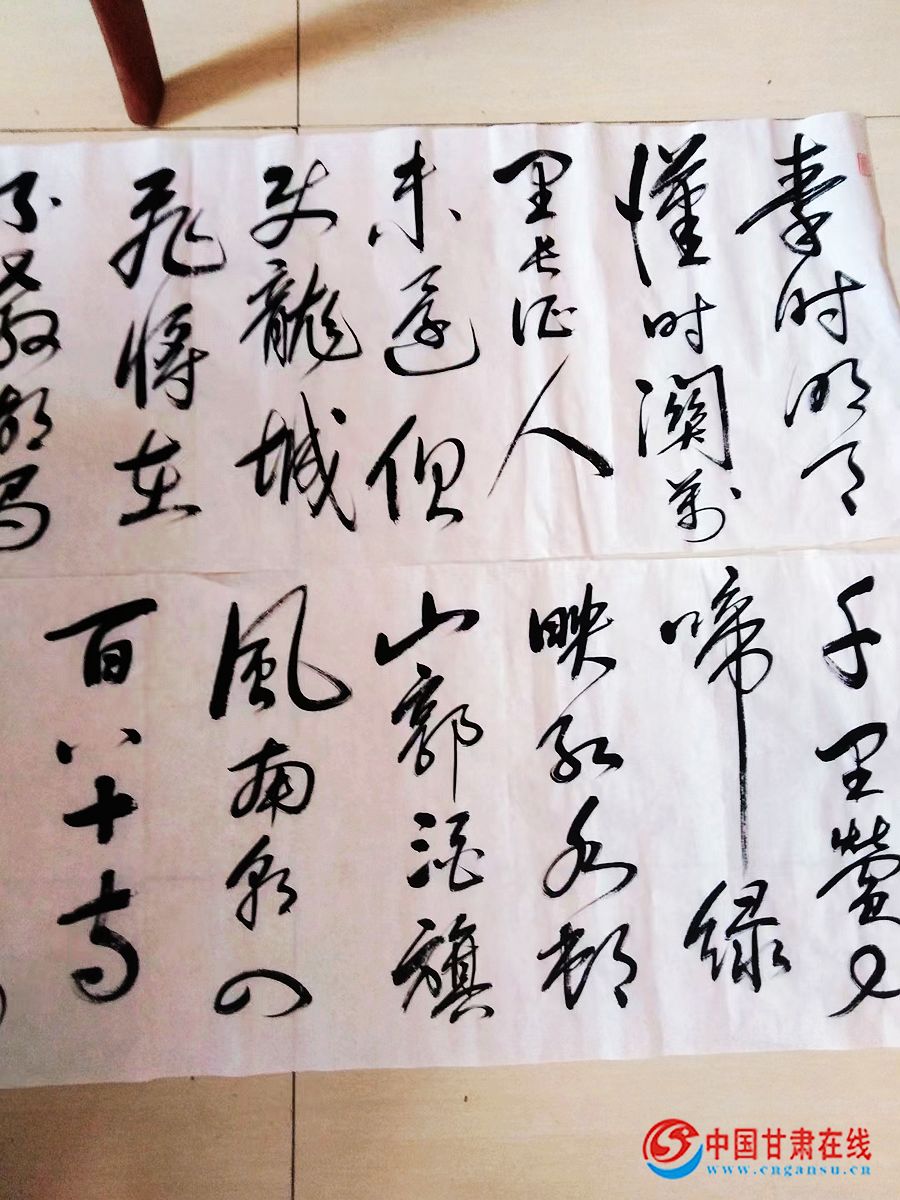 秦时明月
漢时関萬
里长征人
未還但
使龍城
飛将在
不教胡马
千里莺
啼绿
映红水村
山郭酒旗
風南朝四
百八十寺
中国甘肃在线
www.cngansu.cn